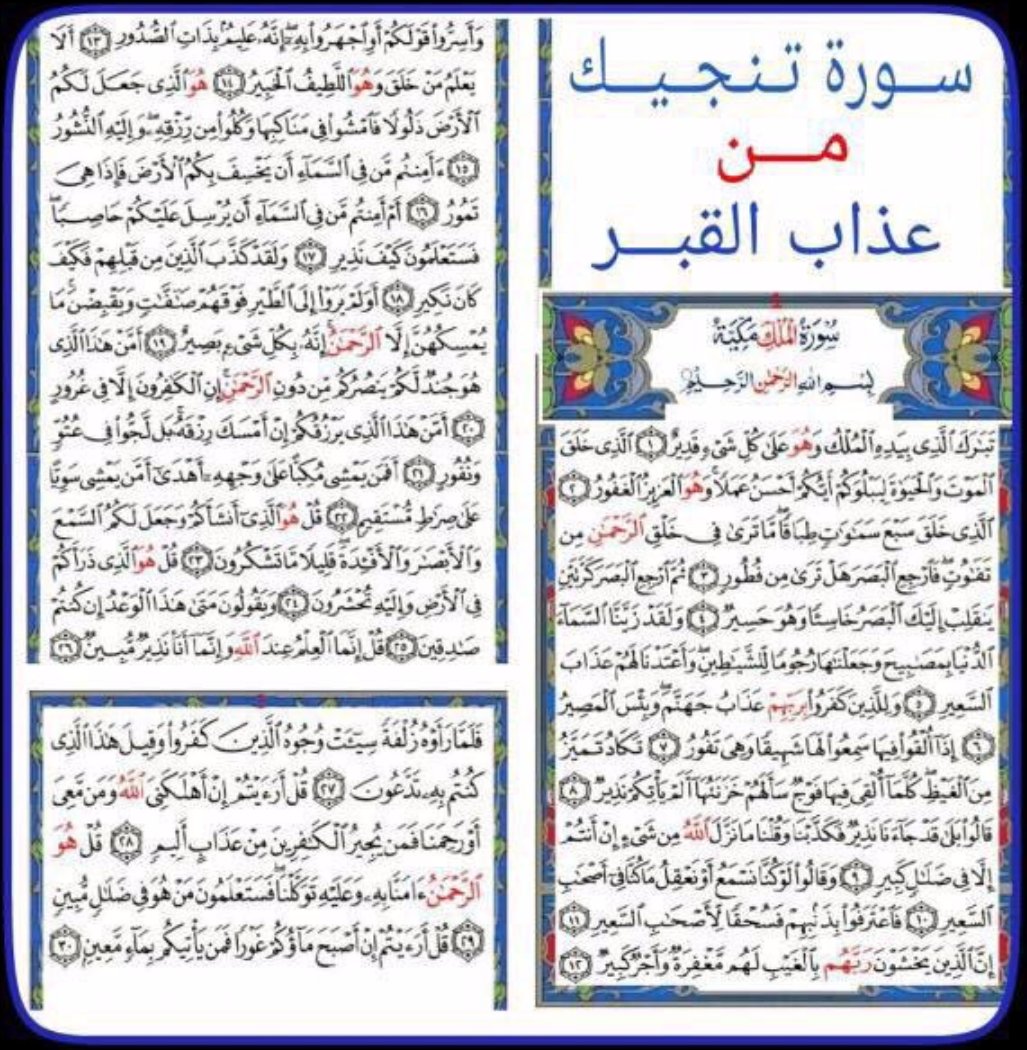 سورة تنجيك
من
عذاب القبر
سُورَةُ الْمُلْكِ مَكِّيَّة
بِسْمِ اللَّهِ الرَّحْمَٰنِ الرَّحِيمِ
تَبَٰرَكَ ٱلَّذِى بِيَدِهِ ٱلْمُلْكُ وَهُوَ عَلَىٰ كُلِّ شَىْءٍ قَدِيرٌ ١ ٱلَّذِى خَلَقَ
ٱلْمَوْتَ وَٱلْحَيَوٰةَ لِيَبْلُوَكُمْ أَيُّكُمْ أَحْسَنُ عَمَلًا وَهُوَ ٱلْعَزِيزُ ٱلْغَفُورُ ٢
ٱلَّذِى خَلَقَ سَبْعَ سَمَٰوَٰتٍ طِبَاقًا مَّا تَرَىٰ فِى خَلْقِ ٱلرَّحْمَٰنِ مِن
تَفَٰوُتٍ فَٱرْجِعِ ٱلْبَصَرَ هَلْ تَرَىٰ مِن فُطُورٍ ٣ ثُمَّ ٱرْجِعِ ٱلْبَصَرَ كَرَّتَيْنِ
يَنقَلِبْ إِلَيْكَ ٱلْبَصَرُ خَاسِئًا وَهُوَ حَسِيرٌ ٤ وَلَقَدْ زَيَّنَّا ٱلسَّمَآءَ
ٱلدُّنْيَا بِمَصَٰبِيحَ وَجَعَلْنَٰهَا رُجُومًا لِّلشَّيَٰطِينِ وَأَعْتَدْنَا لَهُمْ عَذَابَ
ٱلسَّعِيرِ ٥ وَلِلَّذِينَ كَفَرُوا۟ بِرَبِّهِمْ عَذَابُ جَهَنَّمَ وَبِئْسَ ٱلْمَصِيرُ
٦ إِذَآ أُلْقُوا۟ فِيهَا سَمِعُوا۟ لَهَا شَهِيقًا وَهِىَ تَفُورُ ٧ تَكَادُ تَمَيَّزُ
مِنَ ٱلْغَيْظِ كُلَّمَآ أُلْقِىَ فِيهَا فَوْجٌ سَأَلَهُمْ خَزَنَتُهَآ أَلَمْ يَأْتِكُمْ نَذِيرٌ ٨
قَالُوا۟ بَلَىٰ قَدْ جَآءَنَا نَذِيرٌ فَكَذَّبْنَا وَقُلْنَا مَا نَزَّلَ ٱللَّهُ مِن شَىْءٍ إِنْ أَنتُمْ
إِلَّا فِى ضَلَٰلٍ كَبِيرٍ ٩ وَقَالُوا۟ لَوْ كُنَّا نَسْمَعُ أَوْ نَعْقِلُ مَا كُنَّا فِىٓ أَصْحَٰبِ
ٱلسَّعِيرِ ١٠ فَٱعْتَرَفُوا۟ بِذَنۢبِهِمْ فَسُحْقًا لِّأَصْحَٰبِ ٱلسَّعِيرِ ١١
إِنَّ ٱلَّذِينَ يَخْشَوْنَ رَبَّهُم بِٱلْغَيْبِ لَهُم مَّغْفِرَةٌ وَأَجْرٌ كَبِيرٌ ١٢
وَأَسِرُّوا۟ قَوْلَكُمْ أَوِ ٱجْهَرُوا۟ بِهِۦٓ إِنَّهُۥ عَلِيمٌۢ بِذَاتِ ٱلصُّدُورِ ١٣ أَلَا
يَعْلَمُ مَنْ خَلَقَ وَهُوَ ٱللَّطِيفُ ٱلْخَبِيرُ ١٤ هُوَ ٱلَّذِى جَعَلَ لَكُمُ
ٱلْأَرْضَ ذَلُولًا فَٱمْشُوا۟ فِى مَنَاكِبِهَا وَكُلُوا۟ مِن رِّزْقِهِۦ وَإِلَيْهِ ٱلنُّشُورُ
١٥ ءَأَمِنتُم مَّن فِى ٱلسَّمَآءِ أَن يَخْسِفَ بِكُمُ ٱلْأَرْضَ فَإِذَا هِىَ
تَمُورُ ١٦ أَمْ أَمِنتُم مَّن فِى ٱلسَّمَآءِ أَن يُرْسِلَ عَلَيْكُمْ حَاصِبًا
فَسَتَعْلَمُونَ كَيْفَ نَذِيرِ ١٧ وَلَقَدْ كَذَّبَ ٱلَّذِينَ مِن قَبْلِهِمْ فَكَيْفَ
كَانَ نَكِيرِ ١٨ أَوَلَمْ يَرَوْا۟ إِلَى ٱلطَّيْرِ فَوْقَهُمْ صَٰٓفَّٰتٍ وَيَقْبِضْنَ مَا
يُمْسِكُهُنَّ إِلَّا ٱلرَّحْمَٰنُ إِنَّهُۥ بِكُلِّ شَىْءٍۭ بَصِيرٌ ١٩ أَمَّنْ هَٰذَا ٱلَّذِى
هُوَ جُندٌ لَّكُمْ يَنصُرُكُم مِّن دُونِ ٱلرَّحْمَٰنِ إِنِ ٱلْكَٰفِرُونَ إِلَّا فِى غُرُورٍ
٢٠ أَمَّنْ هَٰذَا ٱلَّذِى يَرْزُقُكُمْ إِنْ أَمْسَكَ رِزْقَهُۥ بَل لَّجُّوا۟ فِى عُتُوٍّ
وَنُفُورٍ ٢١ أَفَمَن يَمْشِى مُكِبًّا عَلَىٰ وَجْهِهِۦٓ أَهْدَىٰٓ أَمَّن يَمْشِى سَوِيًّا
عَلَىٰ صِرَٰطٍ مُّسْتَقِيمٍ ٢٢ قُلْ هُوَ ٱلَّذِىٓ أَنشَأَكُمْ وَجَعَلَ لَكُمُ ٱلسَّمْعَ
وَٱلْأَبْصَٰرَ وَٱلْأَفْـِٔدَةَ قَلِيلًا مَّا تَشْكُرُونَ ٢٣ قُلْ هُوَ ٱلَّذِى ذَرَأَكُمْ
فِى ٱلْأَرْضِ وَإِلَيْهِ تُحْشَرُونَ ٢٤ وَيَقُولُونَ مَتَىٰ هَٰذَا ٱلْوَعْدُ إِن كُنتُمْ
صَٰدِقِينَ ٢٥ قُلْ إِنَّمَا ٱلْعِلْمُ عِندَ ٱللَّهِ وَإِنَّمَآ أَنَا۠ نَذِيرٌ مُّبِينٌ ٢٦
فَلَمَّا رَأَوْهُ زُلْفَةً سِيٓـَٔتْ وُجُوهُ ٱلَّذِينَ كَفَرُوا۟ وَقِيلَ هَٰذَا ٱلَّذِى
كُنتُم بِهِۦ تَدَّعُونَ ٢٧ قُلْ أَرَءَيْتُمْ إِنْ أَهْلَكَنِىَ ٱللَّهُ وَمَن مَّعِىَ
أَوْ رَحِمَنَا فَمَن يُجِيرُ ٱلْكَٰفِرِينَ مِنْ عَذَابٍ أَلِيمٍ ٢٨ قُلْ هُوَ
ٱلرَّحْمَٰنُ ءَامَنَّا بِهِۦ وَعَلَيْهِ تَوَكَّلْنَا فَسَتَعْلَمُونَ مَنْ هُوَ فِى ضَلَٰلٍ مُّبِينٍ
٢٩ قُلْ أَرَءَيْتُمْ إِنْ أَصْبَحَ مَآؤُكُمْ غَوْرًا فَمَن يَأْتِيكُم بِمَآءٍ مَّعِينٍۭ ٣٠